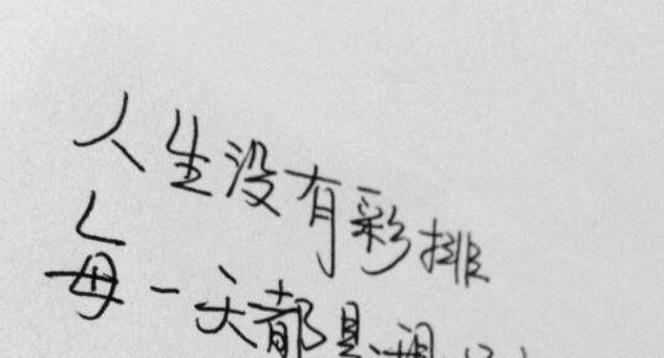 人生没有彩排
每一天都是现